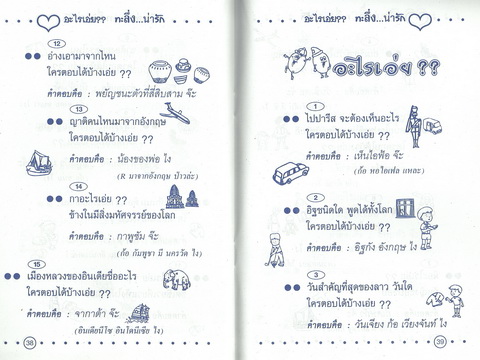 อะไรเอ่ย?? กะสิ่ง...น่ารัก
12
อ่างเอามาจากไหน
ใครตอบได้บ้างเอ่ย ??
คำตอบคือ : พยัญชนะตัวที่สี่สิบสาม จ๊ะ
13
ญาติคนไหนมาจากอังกฤษ
ใครตอบได้บ้างเอ่ย ??
คำตอบคือ : น้องของพ่อ ไง
(R มาจากอังกฤษ ป่าวล่ะ)
14
กาอะไรเอ่ย ??
ข้างในมีสิ่งมหัศจรรย์ของโลก
คำตอบคือ : กาพูชัม จ๊ะ
(ก้อ กัมพูชา มี นครวัด ไง)
15
เมืองหลวงของอินเดียชื่ออะไร
ใครตอบได้บ้างเอ่ย ??
คำตอบคือ : จากาต้า จ๊ะ
(อินเดียนีไซ อินโดนีเซีย ไง)
38
อะไรเอ่ย?? กะสิ่ง...น่ารัก
อะไรเอ่ย ??
1
ไปปารีส จะต้องเห็นอะไร
ใครตอบได้บ้างเอ่ย ??
คำตอบคือ : เห็นไอฟ้อ จ๊ะ
(ก้อ หอไอเฟล แหละ)
2
อิฐชนิดใด พูดได้ทั้งโลก
ใครตอบได้บ้างเอ่ย ??
คำตอบคือ : อิฐกัง อังกฤษ ไง
3
วันสำคัญที่สุดของลาว วันใด
ใครตอบได้บ้างเอ่ย ??
คำตอบคือ : วันเจียง ก้อ เวียงจันท์ ไง
39